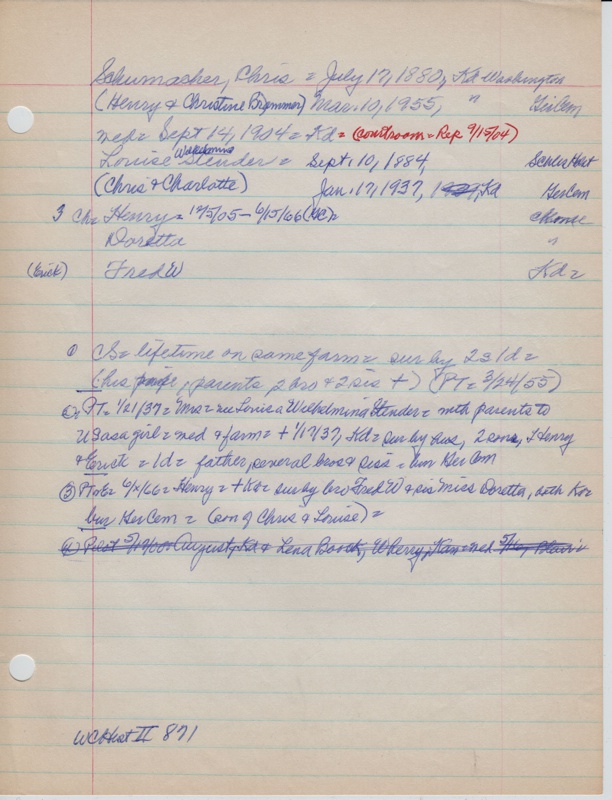 Schumacher, Chris = July 17, 1880, Kd Washington
(Henry & Christine Brammer) Mar. 10, 1955, " GerCem
wed = Sept 14, 1904 = Kd = (courtroom = Rep 9/15/04)
Louise Stender = Sept. 10, 1884,
(Chris & Charlotte) Jan. 17, 1937, Kd GerCem
3 Ch = Henry = 12/5/05 - 6/15/66 (GC) =
Doretta "
(Erick) Fred W Kd =
① CS = lifetime on same farm = sur by 2s 1d =
(his wife, parents 2 bro & 2 sis +) (PT = 3/24/55)
② PT = 1/21/37 = Mrs = nee Louisa Stender = with parents to
USasa girl = wed & farm = + 1/17/37, Kd = sur by hus, 2 sons, Henry
& Erick = 1d = father, several bros & sis = bur Ger Cem
③ = Henry = + = sur by bro Fred W & sis Miss Doretta, both
bur GerCem = (son of Chris & Louise) =
August, Kd & Lena
WCHist II 871